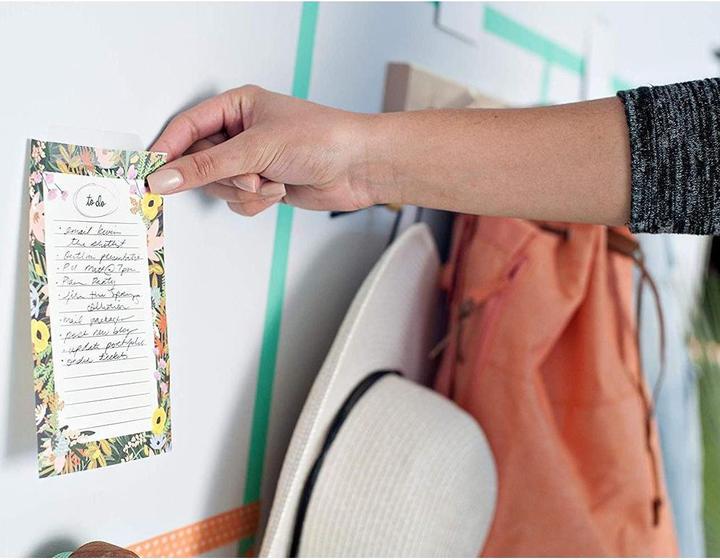 to do
· email Kevin
the shotlist
· Outline presentation
· P.U Matt @ 7pm
· Plan Party
· film the Spring
collection
· mail packages
· post new blog
· update portfolio
· order tickets